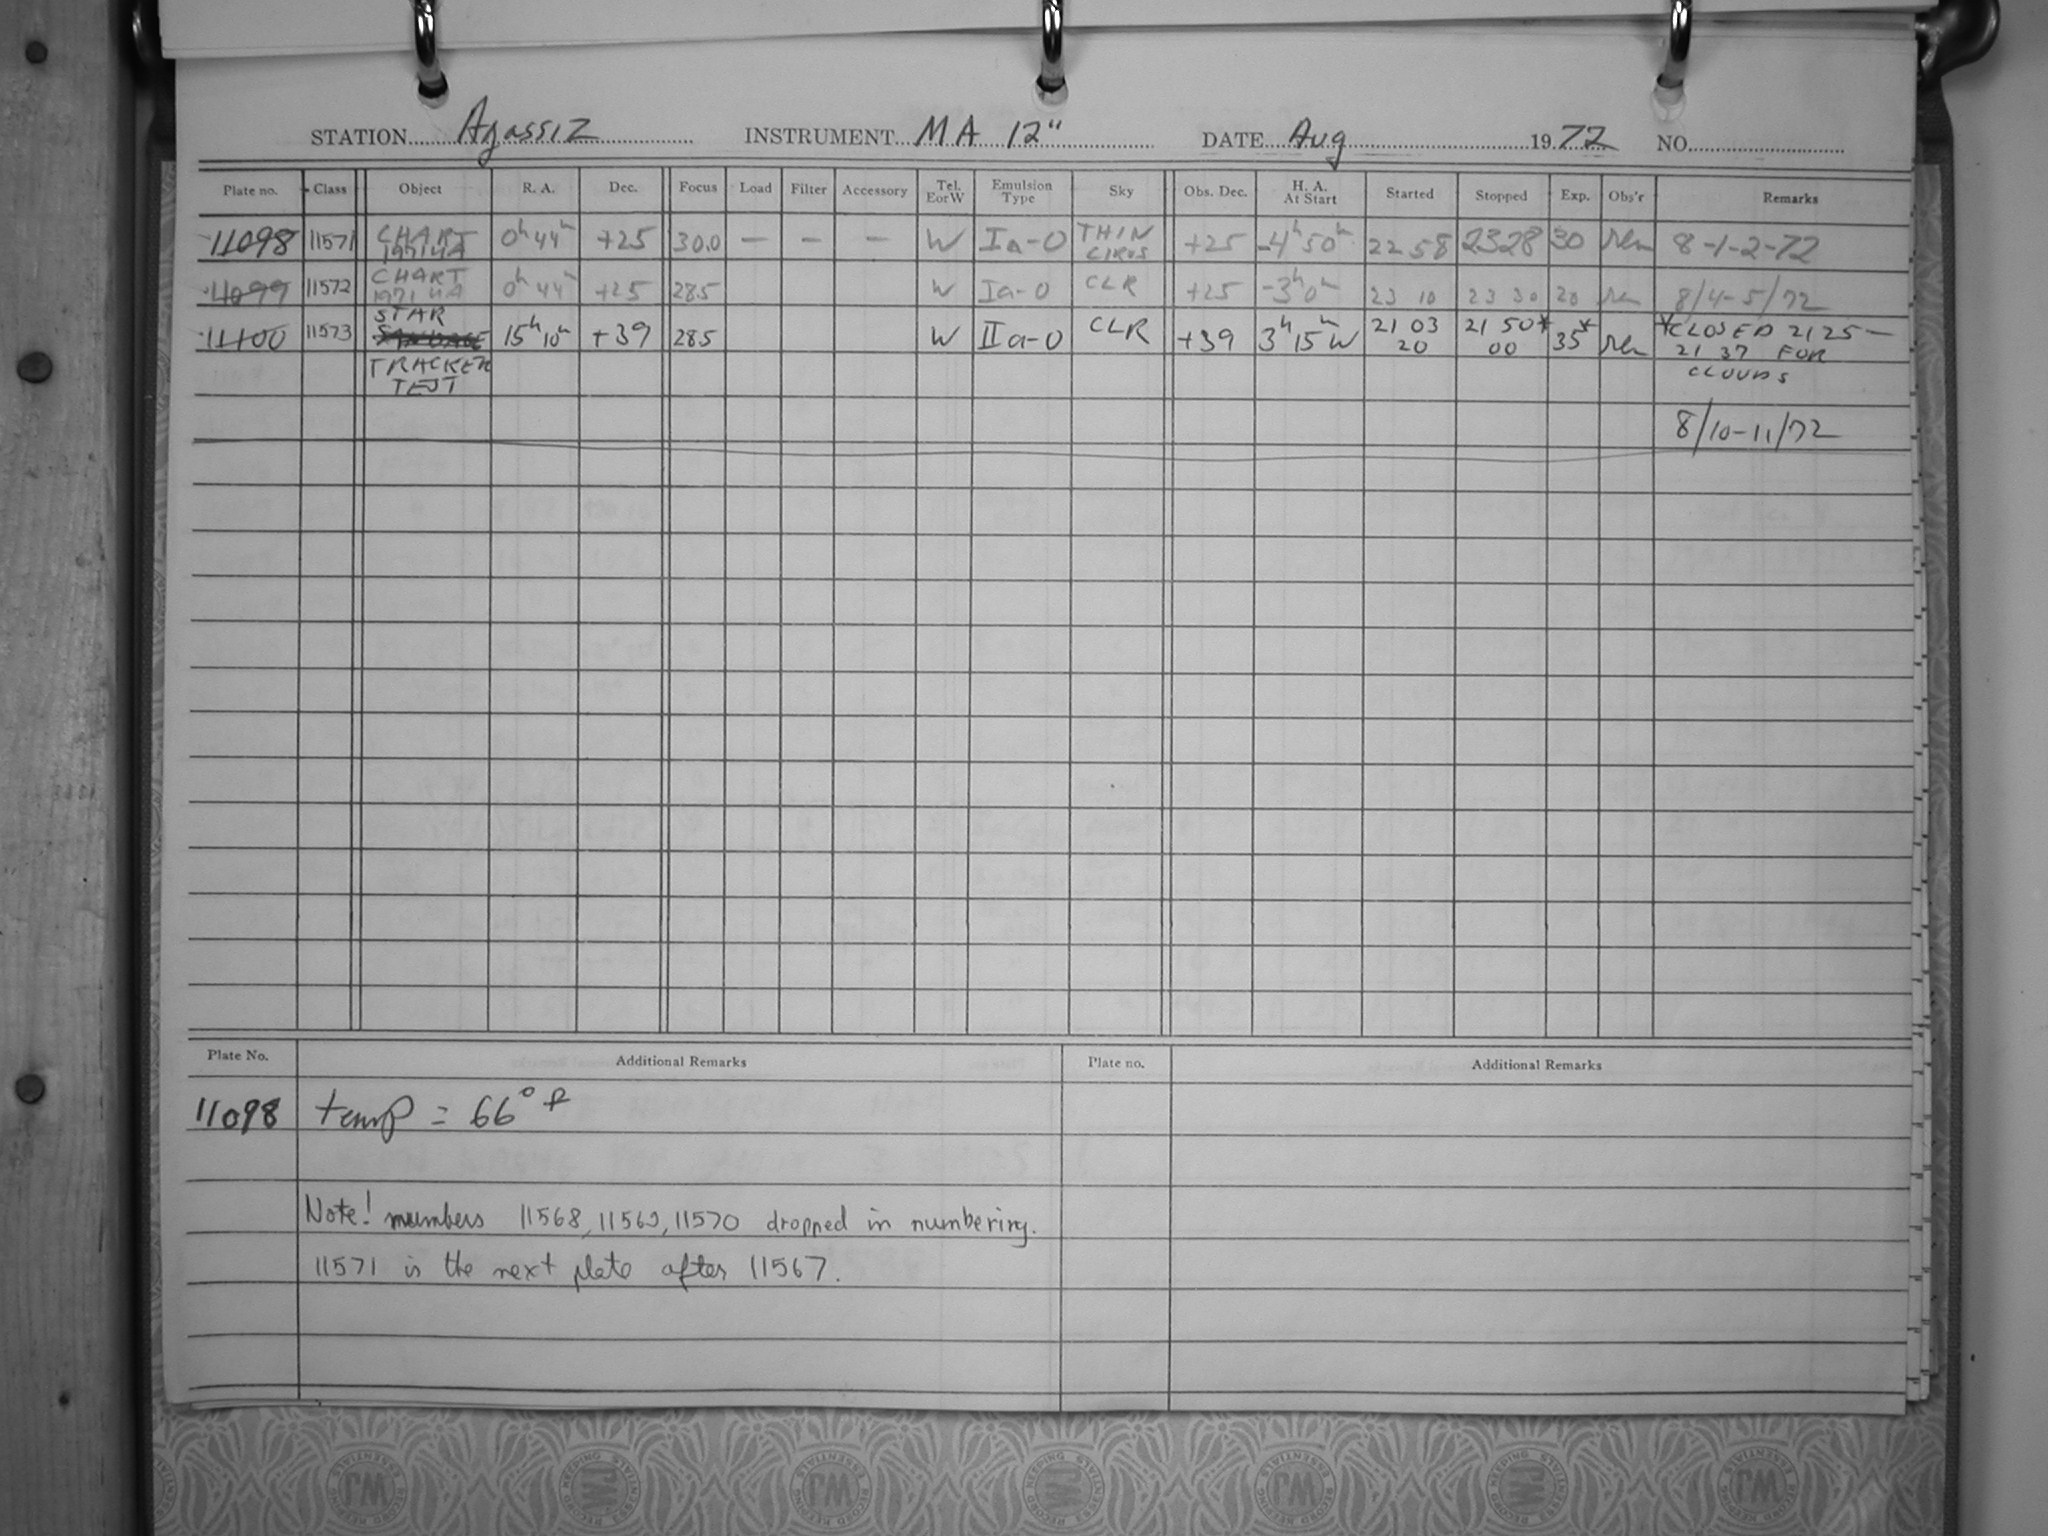 STATION Agassiz INSTRUMENT MA 12" DATE Aug 1972 NO.
Plate no. Class Object R. A. Dec. Focus Load Filter Accessory Tel. EorW Emulsion Type Sky Obs. Dec. H. A. At Start Started Stopped Exp. Obs'r Remarks
11098 11571 CHART 1971 UA 0h 44m +25 30.0 — – – W Ia-O THIN CIRUS +25 -4h 50m 22 58 2328 30 rem 8-1-2-72
11099 11572 CHART 1971 UA 0h 44m +25 28.5 W Ia-O CLR +25 -3h 0m 23 10 23 30 20 rem 8/4-5/72
11100 11573 STAR TRACKER TEST 15h 10m +39 28.5 W IIa-O CLR +39 3h 15m W 21 03 20 21 50* 00 35* rem *CLOSED 2125 —
21 37 FOR
CLOUDS
8/10-11/72
Plate No. Additional Remarks Plate no. Additional Remarks
11098 temp = 66° f
Note! numbers 11568, 11569, 11570 dropped in numbering.
11571 is the next plate after 11567.